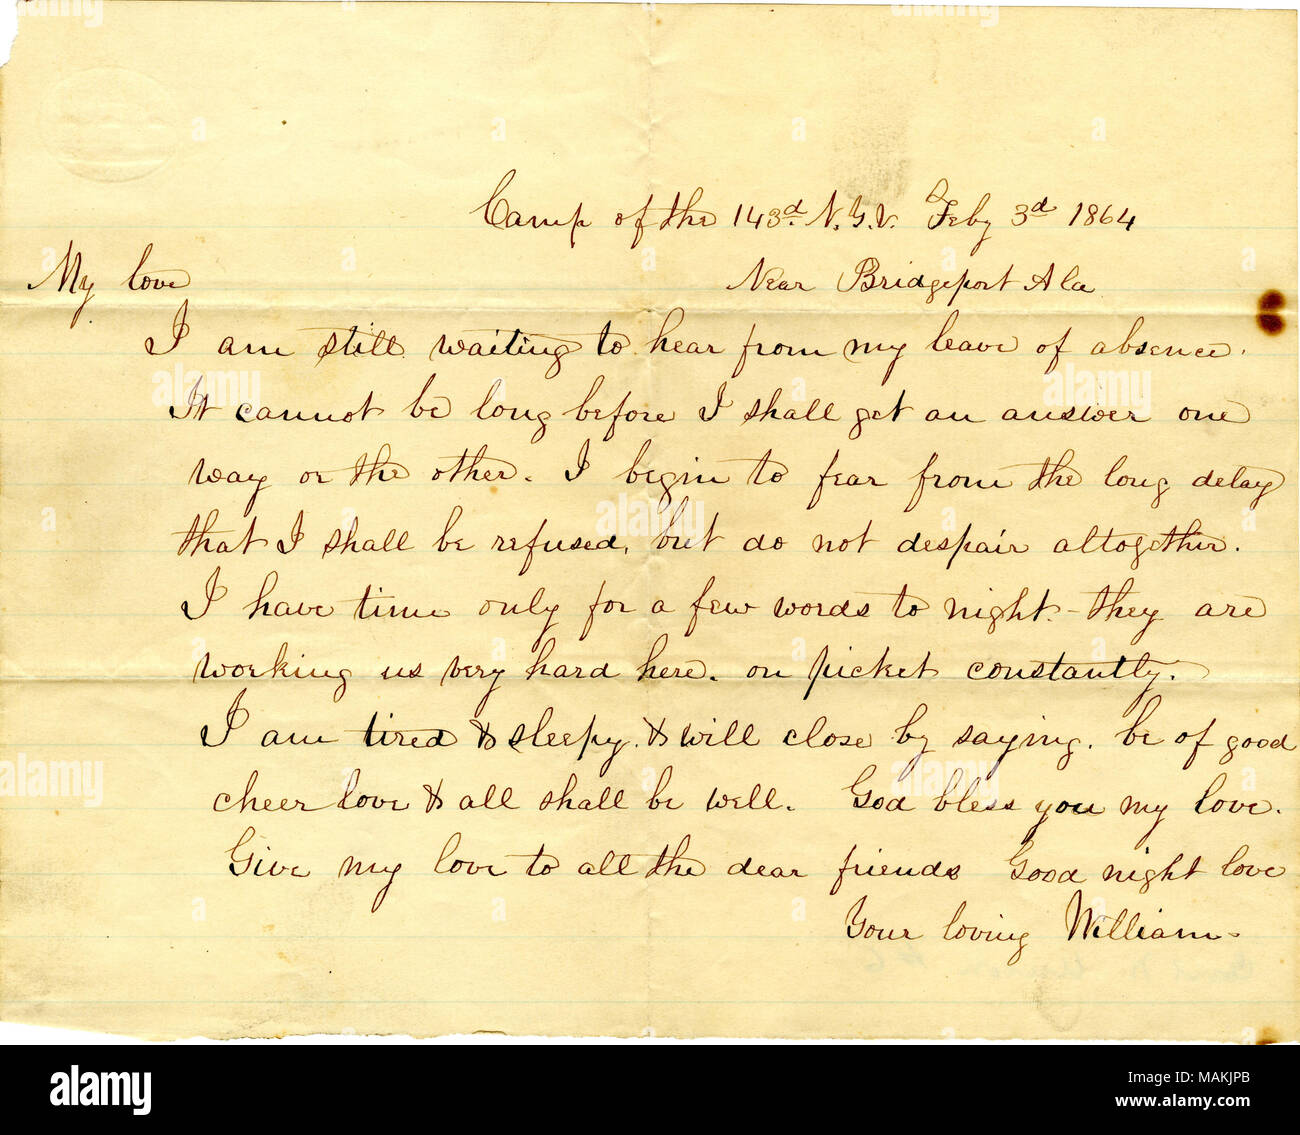 Camp of the 143d. N.Y.V. Feby 3d 1864
My love Near Bridgeport Ala
I am still waiting to hear from my leave of absence.
It cannot be long before I shall get an answer one
way or the other. I begin to fear from the long delay
that I shall be refused, but do not despair altogether.
I have time only for a few words to night - they are
working us very hard here. on picket constantly.
I am tired & sleepy. & will close by saying. be of good
cheer love & all shall be well. God bless you my love.
Give my love to all the dear friends Good night love
Your loving William.
alamy
Image ID: MAKJPB
www.alamy.com